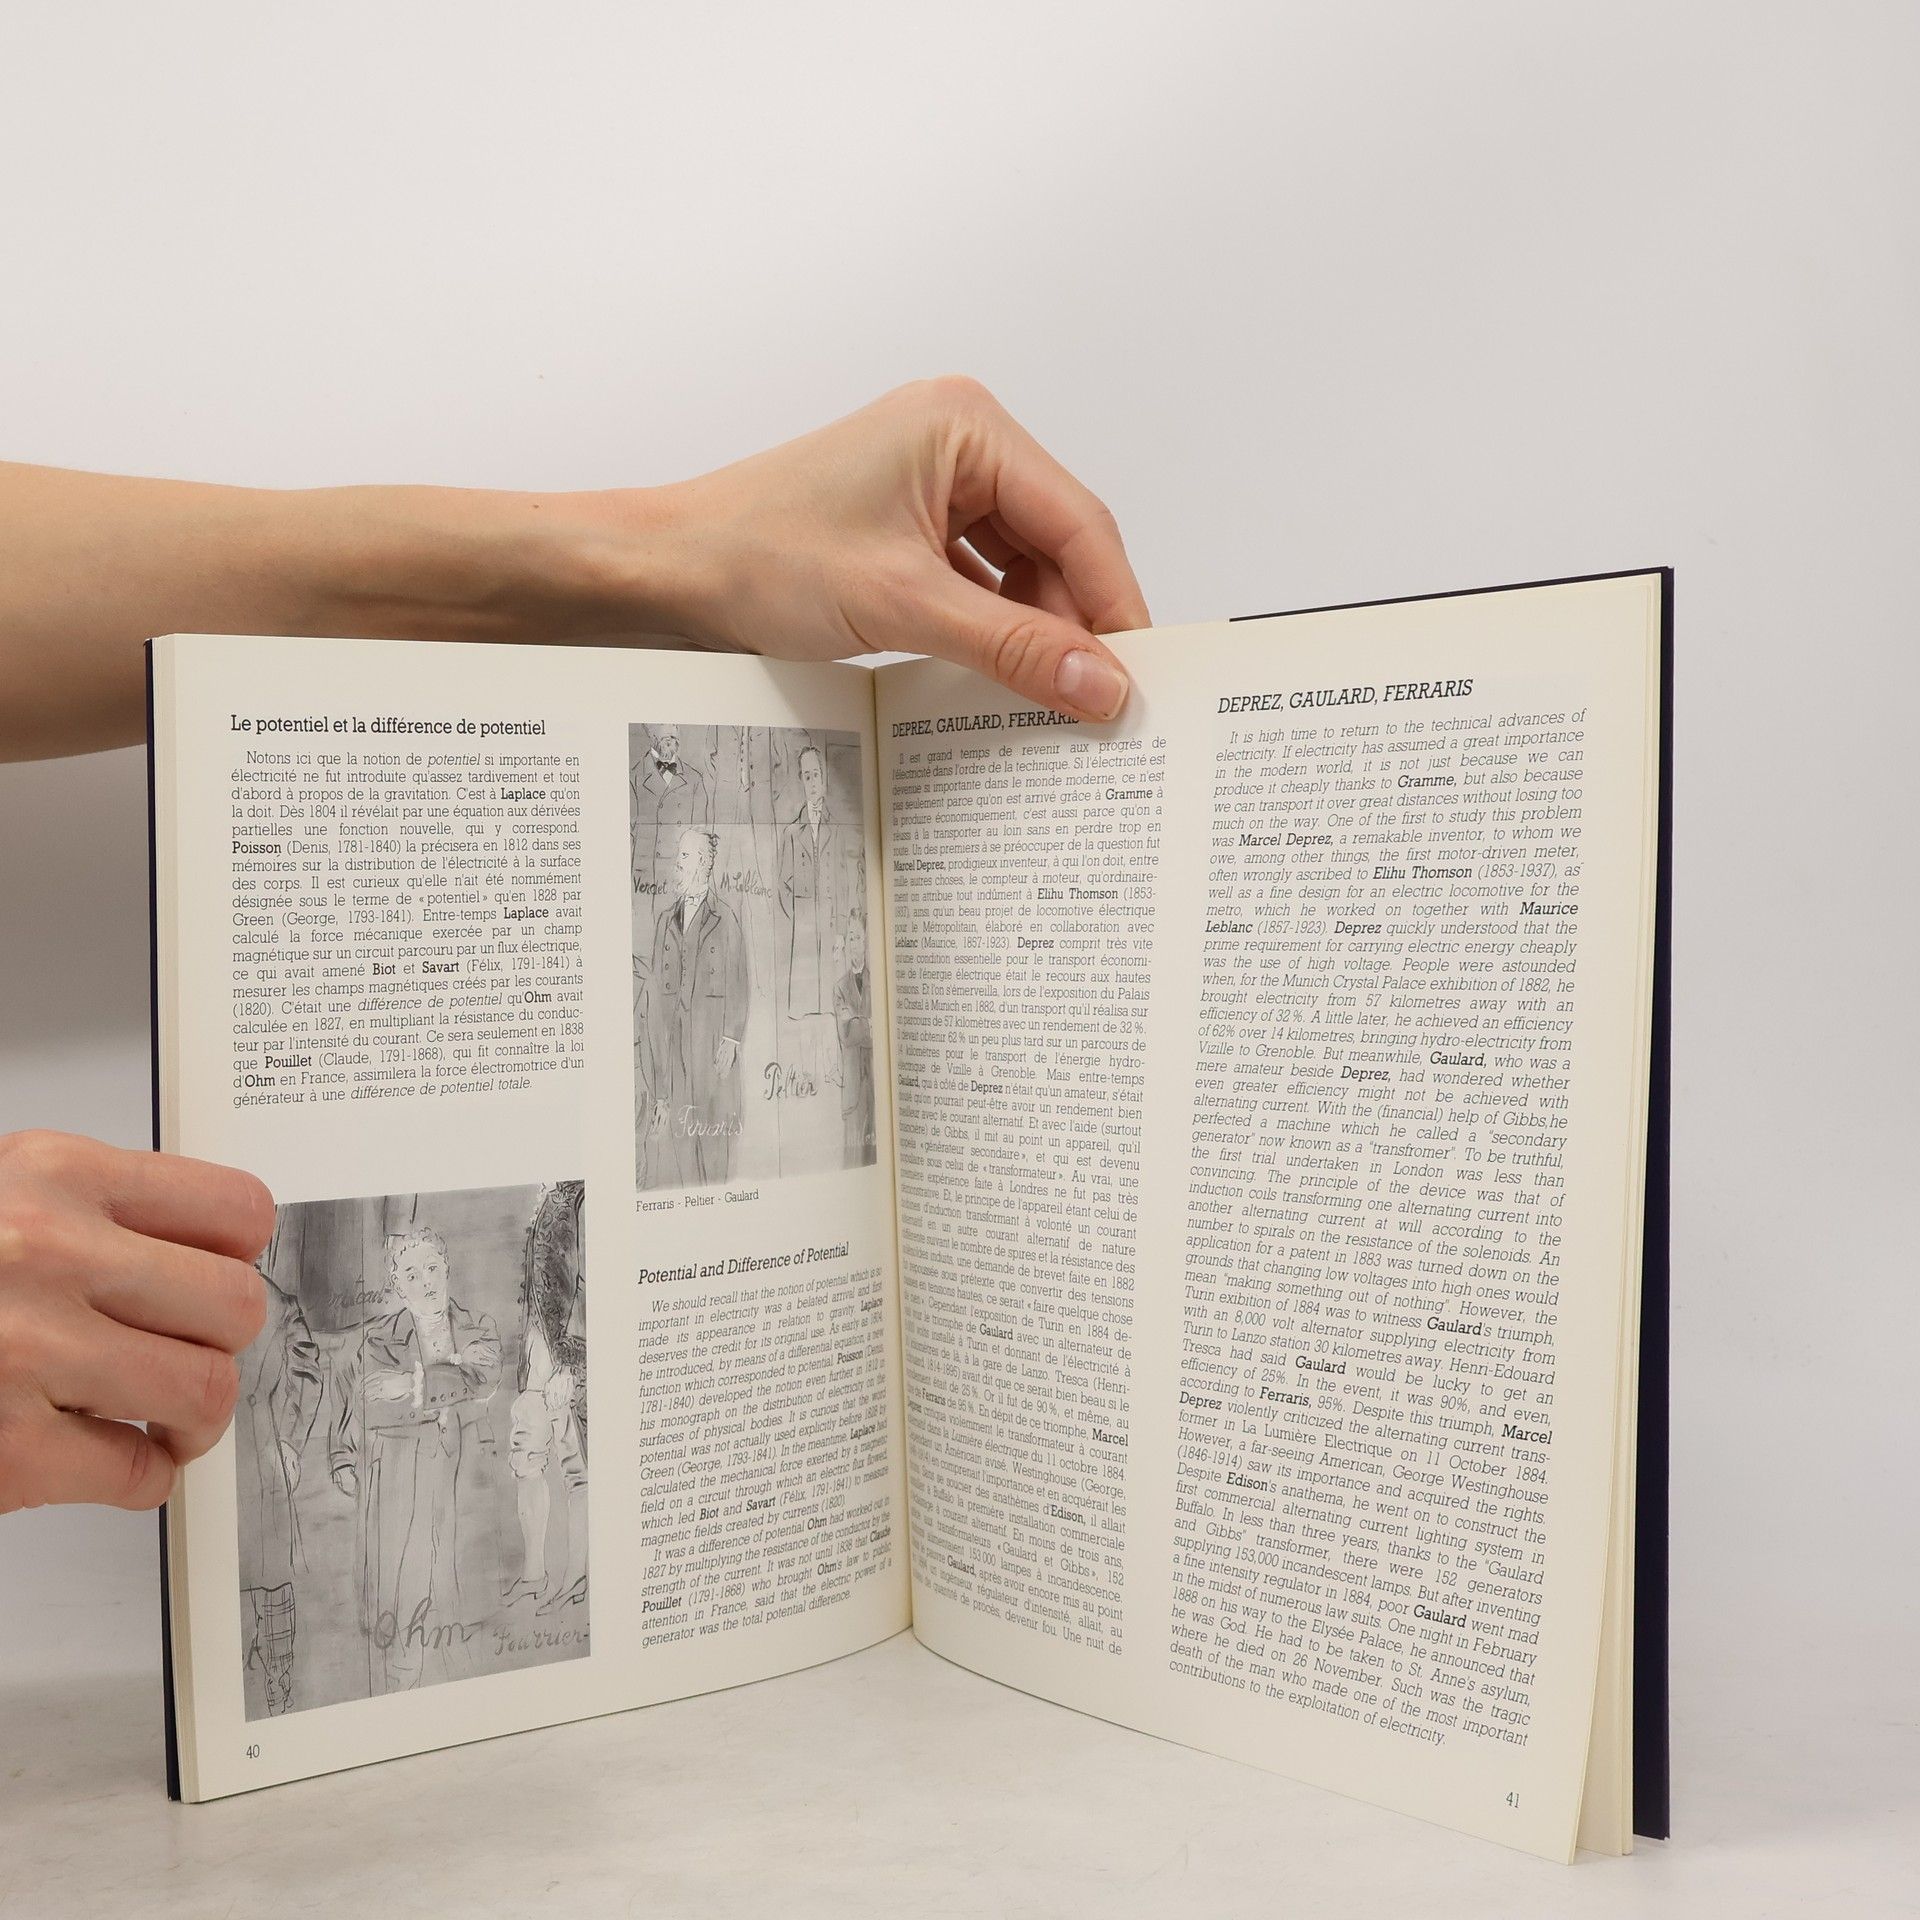 Le potentiel et la différence de potentiel
Notons ici que la notion de potentiel si importante en
électricité ne fut introduite qu'assez tardivement et tout
d'abord à propos de la gravitation. C'est à Laplace qu'on
la doit. Dès 1804 il révélait par une équation aux dérivées
partielles une fonction nouvelle, qui y correspond.
Poisson (Denis, 1781-1840) la précisera en 1812 dans ses
mémoires sur la distribution de l'électricité à la surface
des corps. Il est curieux qu'elle n'ait été nommément
désignée sous le terme de « potentiel » qu'en 1828 par
Green (George, 1793-1841). Entre-temps Laplace avait
calculé la force mécanique exercée par un champ
magnétique sur un circuit parcouru par un flux électrique,
ce qui avait amené Biot et Savart (Félix, 1791-1841) à
mesurer les champs magnétiques créés par les courants
(1820). C'était une différence de potentiel qu'Ohm avait
calculée en 1827, en multipliant la résistance du conduc-
teur par l'intensité du courant. Ce sera seulement en 1838
que Pouillet (Claude, 1791-1868), qui fit connaître la loi
d'Ohm en France, assimilera la force électromotrice d'un
générateur à une différence de potentiel totale.
Ohm
Fourrier
40
Verdet
M. Leblanc
Peltier
Ferraris
Ferraris - Peltier - Gaulard
Potential and Difference of Potential
We should recall that the notion of potential which is so
important in electricity was a belated arrival and first
made its appearance in relation to gravity. Laplace
deserves the credit for its original use. As early as 1804,
he introduced, by means of a differential equation, a new
function which corresponded to potential. Poisson (Denis,
1781-1840) developed the notion even further in 1812 in
his monograph on the distribution of electricity on the
surfaces of physical bodies. It is curious that the word
potential was not actually used explicitly before 1828 by
Green (George, 1793-1841). In the meantime, Laplace had
calculated the mechanical force exerted by a magnetic
field on a circuit through which an electric flux flowed,
which led Biot and Savart (Félix, 1791-1841) to measure
magnetic fields created by currents (1820).
It was a difference of potential Ohm had worked out in
1827 by multiplying the resistance of the conductor by the
strength of the current. It was not until 1838 that Claude
Pouillet (1791-1868) who brought Ohm's law to public
attention in France, said that the electric power of a
generator was the total potential difference.
DEPREZ, GAULARD, FERRARIS
Il est grand temps de revenir aux progrès de
l'électricité dans l'ordre de la technique. Si l'électricité est
devenue si importante dans le monde moderne, ce n'est
pas seulement parce qu'on est arrivé grâce à Gramme à
la produire économiquement, c'est aussi parce qu'on a
réussi à la transporter au loin sans en perdre trop en
route. Un des premiers à se préoccuper de la question fut
Marcel Deprez, prodigieux inventeur, à qui l'on doit, entre
mille autres choses, le compteur à moteur, qu'ordinaire-
ment on attribue tout indûment à Elihu Thomson (1853-
1937), ainsi qu'un beau projet de locomotive électrique
pour le Métropolitain, élaboré en collaboration avec
Leblanc (Maurice, 1857-1923). Deprez comprit très vite
qu'une condition essentielle pour le transport économi-
que de l'énergie électrique était le recours aux hautes
tensions. Et l'on s'émerveilla, lors de l'exposition du Palais
de Cristal à Munich en 1882, d'un transport qu'il réalisa sur
un parcours de 57 kilomètres avec un rendement de 32 %.
Il devait obtenir 62 % un peu plus tard sur un parcours de
14 kilomètres pour le transport de l'énergie hydro-
électrique de Vizille à Grenoble. Mais entre-temps
Gaulard, qui à côté de Deprez n'était qu'un amateur, s'était
qu'on pourrait peut-être avoir un rendement bien
meilleur avec le courant alternatif. Et avec l'aide (surtout
financière) de Gibbs, il mit au point un appareil, qu'il
appela « générateur secondaire », et qui est devenu
populaire sous celui de « transformateur ». Au vrai, une
première expérience faite à Londres ne fut pas très
démonstrative. Et, le principe de l'appareil étant celui de
bobines d'induction transformant à volonté un courant
alternatif en un autre courant alternatif de nature
différente suivant le nombre de spires et la résistance des
solénoïdes induits, une demande de brevet faite en 1882
fut repoussée sous prétexte que convertir des tensions
basses en tensions hautes, ce serait « faire quelque chose
de rien ». Cependant l'exposition de Turin en 1884 de-
vait voir le triomphe de Gaulard avec un alternateur de
volts installé à Turin et donnant de l'électricité à
kilomètres de là, à la gare de Lanzo. Tresca (Henri-
1814-1895) avait dit que ce serait bien beau si le
rendement était de 25 %. Or il fut de 90 %, et même, au
de Ferraris de 95 %. En dépit de ce triomphe, Marcel
Deprez critiqua violemment le transformateur à courant
alternatif dans la Lumière électrique du 11 octobre 1884.
Cependant un Américain avisé, Westinghouse (George,
en comprenait l'importance et en acquérait les
Sans se soucier des anathèmes d'Edison, il allait
à Buffalo la première installation commerciale
d'éclairage à courant alternatif. En moins de trois ans,
aux transformateurs « Gaulard et Gibbs », 152
alimentaient 153.000 lampes à incandescence.
le pauvre Gaulard, après avoir encore mis au point
un ingénieux régulateur d'intensité, allait, au
de quantité de procès, devenir fou. Une nuit de
DEPREZ, GAULARD, FERRARIS
It is high time to return to the technical advances of
electricity. If electricity has assumed a great importance
in the modern world, it is not just because we can
produce it cheaply thanks to Gramme, but also because
we can transport it over great distances without losing too
much on the way. One of the first to study this problem
was Marcel Deprez, a remakable inventor, to whom we
owe, among other things, the first motor-driven meter,
often wrongly ascribed to Elihu Thomson (1853-1937), as
well as a fine design for an electric locomotive for the
metro, which he worked on together with Maurice
Leblanc (1857-1923). Deprez quickly understood that the
prime requirement for carrying electric energy cheaply
was the use of high voltage. People were astounded
when, for the Munich Crystal Palace exhibition of 1882, he
brought electricity from 57 kilometres away with an
efficiency of 32 %. A little later, he achieved an efficiency
of 62% over 14 kilometres, bringing hydro-electricity from
Vizille to Grenoble. But meanwhile, Gaulard, who was a
mere amateur beside Deprez, had wondered whether
even greater efficiency might not be achieved with
alternating current. With the (financial) help of Gibbs, he
perfected a machine which he called a "secondary
generator" now known as a "transfromer". To be truthful,
the first trial undertaken in London was less than
convincing. The principle of the device was that of
induction coils transforming one alternating current into
another alternating current at will according to the
number to spirals on the resistance of the solenoids. An
application for a patent in 1883 was turned down on the
grounds that changing low voltages into high ones would
mean "making something out of nothing". However, the
Turin exibition of 1884 was to witness Gaulard's triumph,
with an 8,000 volt alternator supplying electricity from
Turin to Lanzo station 30 kilometres away. Henri-Edouard
Tresca had said Gaulard would be lucky to get an
efficiency of 25%. In the event, it was 90%, and even,
according to Ferraris, 95%. Despite this triumph, Marcel
Deprez violently criticized the alternating current trans-
former in La Lumière Electrique on 11 October 1884.
However, a far-seeing American, George Westinghouse
(1846-1914) saw its importance and acquired the rights.
Despite Edison's anathema, he went on to construct the
first commercial alternating current lighting system in
Buffalo. In less than three years, thanks to the "Gaulard
and Gibbs" transformer, there were 152 generators
supplying 153,000 incandescent lamps. But after inventing
a fine intensity regulator in 1884, poor Gaulard went mad
in the midst of numerous law suits. One night in February
1888 on his way to the Elysée Palace, he announced that
he was God. He had to be taken to St. Anne's asylum,
where he died on 26 November. Such was the tragic
death of the man who made one of the most important
contributions to the exploitation of electricity.
41